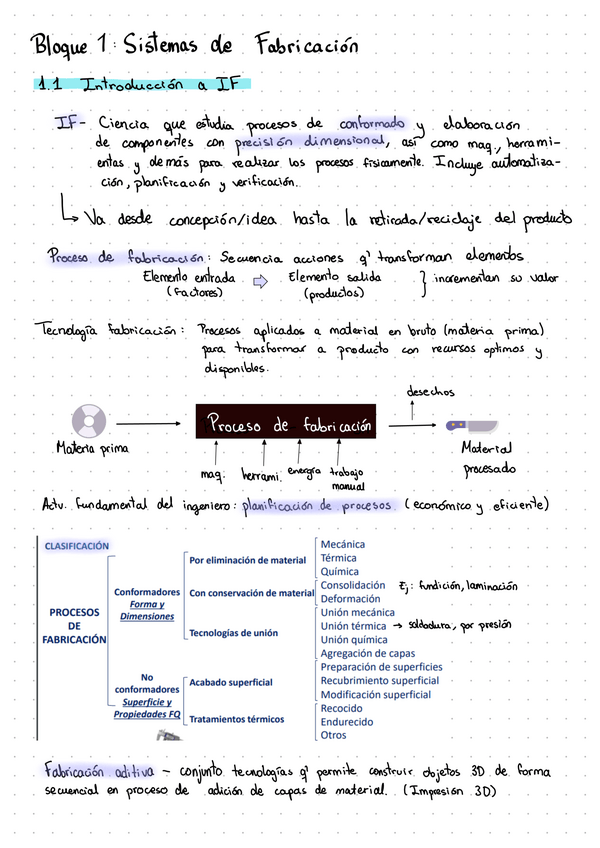 Bloque 1: Sistemas de Fabricación
1.1 Introducción a IF
IF - Ciencia que estudia procesos de conformado y elaboración
de componentes con precisión dimensional, así como maq., herrami-
entas y demás para realizar los procesos físicamente. Incluye automatiza-
ción, planificación y verificación.
Va desde concepción/idea hasta la retirada/reciclaje del producto
Proceso de fabricación: Secuencia acciones q' transforman elementos
Elemento entrada ⇨ Elemento salida } incrementan su valor
(factores) (productos)
Tecnología fabricación: Procesos aplicados a material en bruto (materia prima)
para transformar a producto con recursos optimos y
disponibles.
desechos
Proceso de fabricación
Materia prima
Material
procesado
maq. herrami. energía trabajo
manual
Actv. fundamental del ingeniero: planificación de procesos. (económico y eficiente)
CLASIFICACIÓN
PROCESOS
DE
FABRICACIÓN
Conformadores
Forma y
Dimensiones
Por eliminación de material
Mecánica
Térmica
Química
Con conservación de material
Consolidación Ej: fundición, laminación
Deformación
Tecnologías de unión
Unión mecánica
Unión térmica → soldadura, por presión
Unión química
Agregación de capas
No
conformadores
Superficie y
Propiedades FQ
Acabado superficial
Preparación de superficies
Recubrimiento superficial
Modificación superficial
Tratamientos térmicos
Recocido
Endurecido
Otros
Fabricación aditiva - conjunto tecnologías q' permite construir objetos 3D de forma
secuencial en proceso de adición de capas de material. (Impresión 3D)